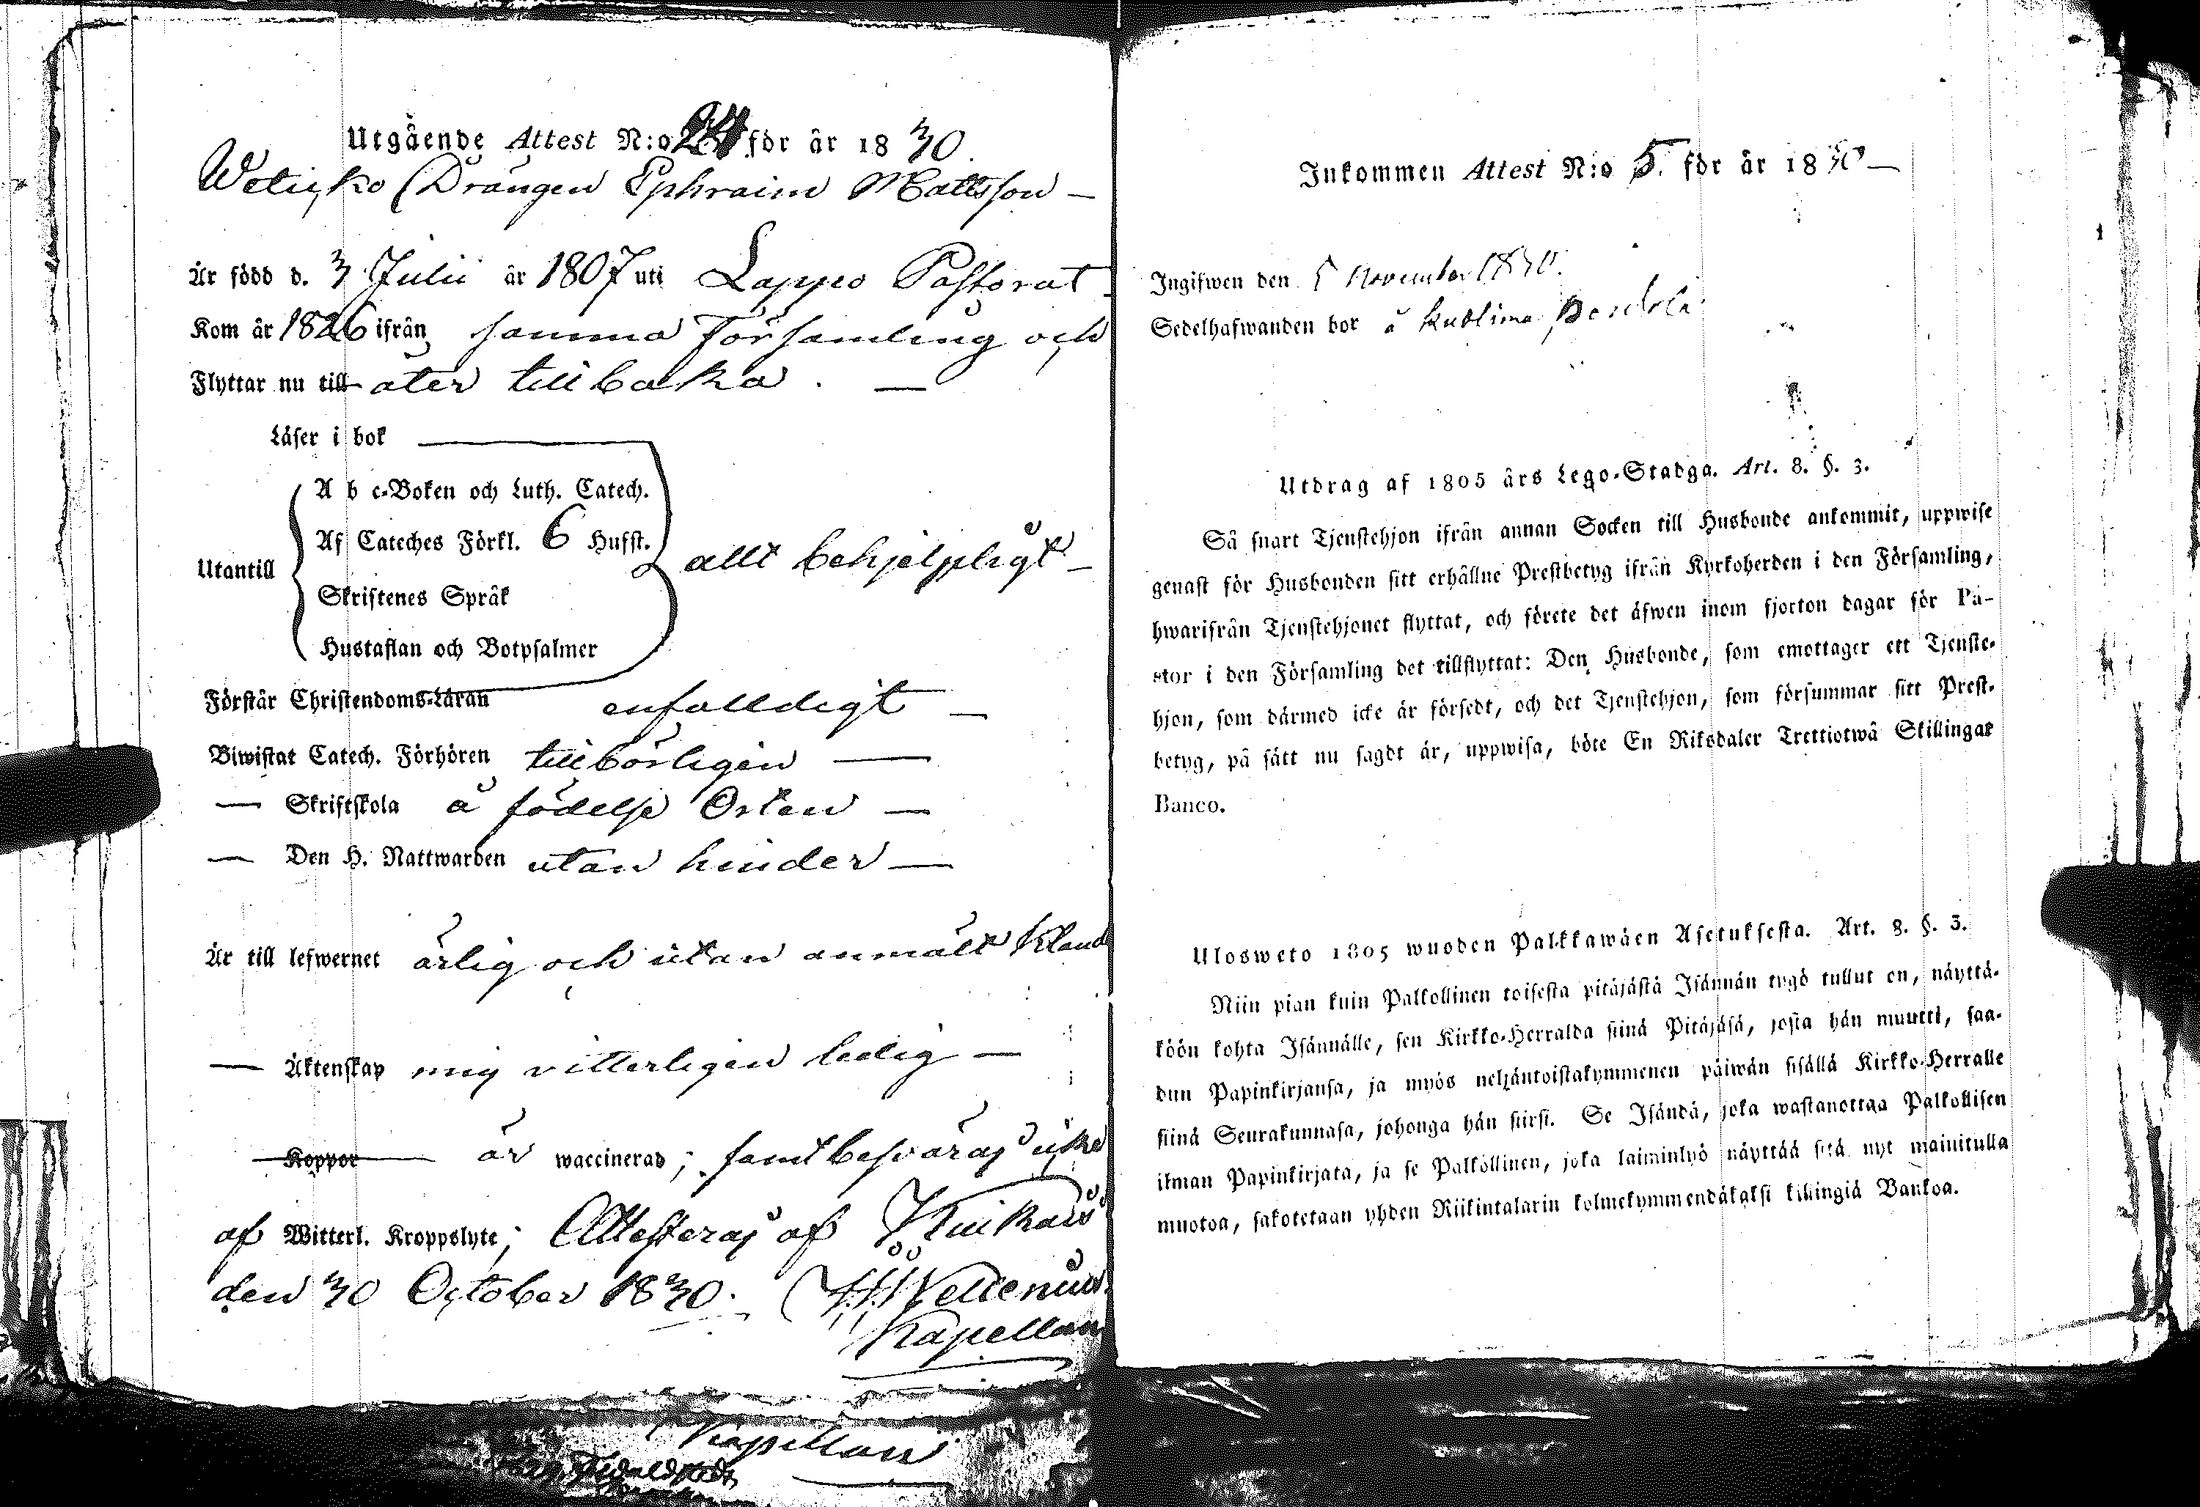 Utgående Attest N:o 24 för år 1830.
Drängen Ephraim Mattsson —
Är född d. 3 Julii år 1807 uti Lappo Pastorat.
Kom år 1826 ifrån samma Församling och
Flyttar nu till åter tillbaka. —
Läser i bok
A b c-Boken och Luth. Catech.
Af Cateches Förkl. 6 Hufst.
Utantill
allt behjelpligt —
Skriftenes Språk
Hustaflan och Botpsalmer
Förstår Christendoms-Läran enfalldigt —
Biwistat Catech. Förhören tillbörligen —
— Skriftskola å födelse Orten —
— Den H. Nattwarden utan hinder —
Är till lefwernet ärlig och utan anmält kland
— Äktenskap mig vitterligen ledig —
Koppor är waccinerad; samt besväras icke
af Witterl. Kroppslyte; Attesteras af
den 30 October 1830.
Kapellan
Kapellan
Inkommen Attest N:o 5. för år 1830 —
Ingifwen den 5 November 1830.
Sedelhafwanden bor å
Utdrag af 1805 års Lego-Stadga. Art. 8. §. 3.
Så snart Tjenstehjon ifrån annan Socken till Husbonde ankommit, uppwise
genast för Husbonden sitt erhållne Prestbetyg ifrån Kyrkoherden i den Församling,
hwarifrån Tjenstehjonet flyttat, och förete det äfwen inom fjorton dagar för Pa-
stor i den Församling det tillflyttat: Den Husbonde, som emottager ett Tjenste-
hjon, som därmed icke är försedt, och det Tjenstehjon, som försummar sitt Prest-
betyg, på sätt nu sagdt är, uppwisa, böte En Riksdaler Trettiotwå Skillingar
Banco.
Ulosweto 1805 wuoden Palkkawäen Asetuksesta. Art. 8. §. 3.
Niin pian kuin Palkollinen toisesta pitäjästä Isännän tygö tullut on, näyttä-
köön kohta Isännälle, sen Kirkko-Herralda siinä Pitäjäsä, josta hän muutti, saa-
dun Papinkirjansa, ja myös neljäntoistakymmenen päiwän sisällä Kirkko-Herralle
siinä Seurakunnasa, johonga hän siirsi. Se Isändä, joka wastanottaa Palkollisen
ilman Papinkirjata, ja se Palkollinen, joka laiminlyö näyttää sitä nyt mainitulla
muotoa, sakotetaan yhden Riikintalarin kolmekymmendäkaksi killingiä Bankoa.